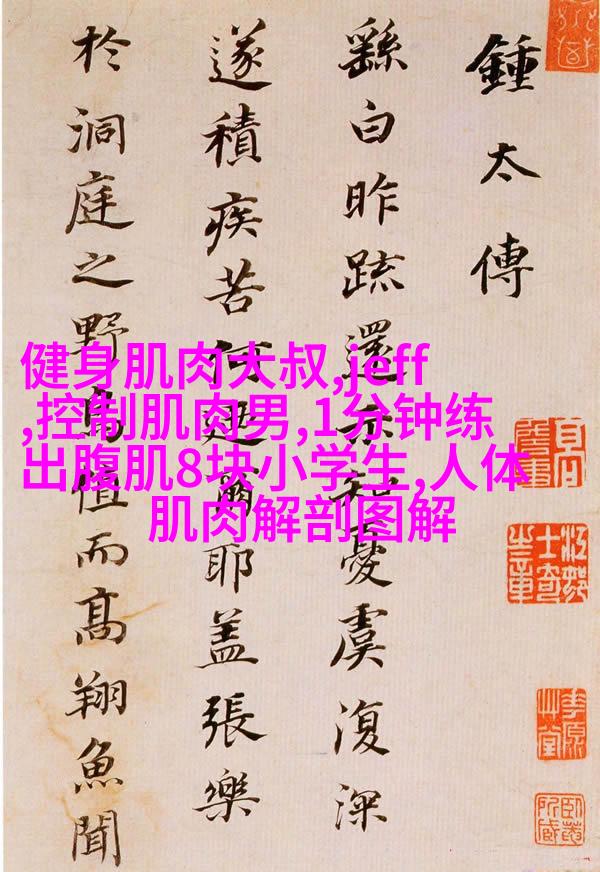 鍾太傅
繇白昨疏還示知憂虞復深
遂積疾苦何迺爾耶蓋張樂
於洞庭之野鳥值而高翔魚聞
健身肌肉大叔,jeff
,控制肌肉男,1分钟练
出腹肌8块小学生,人体
肌肉解剖图解